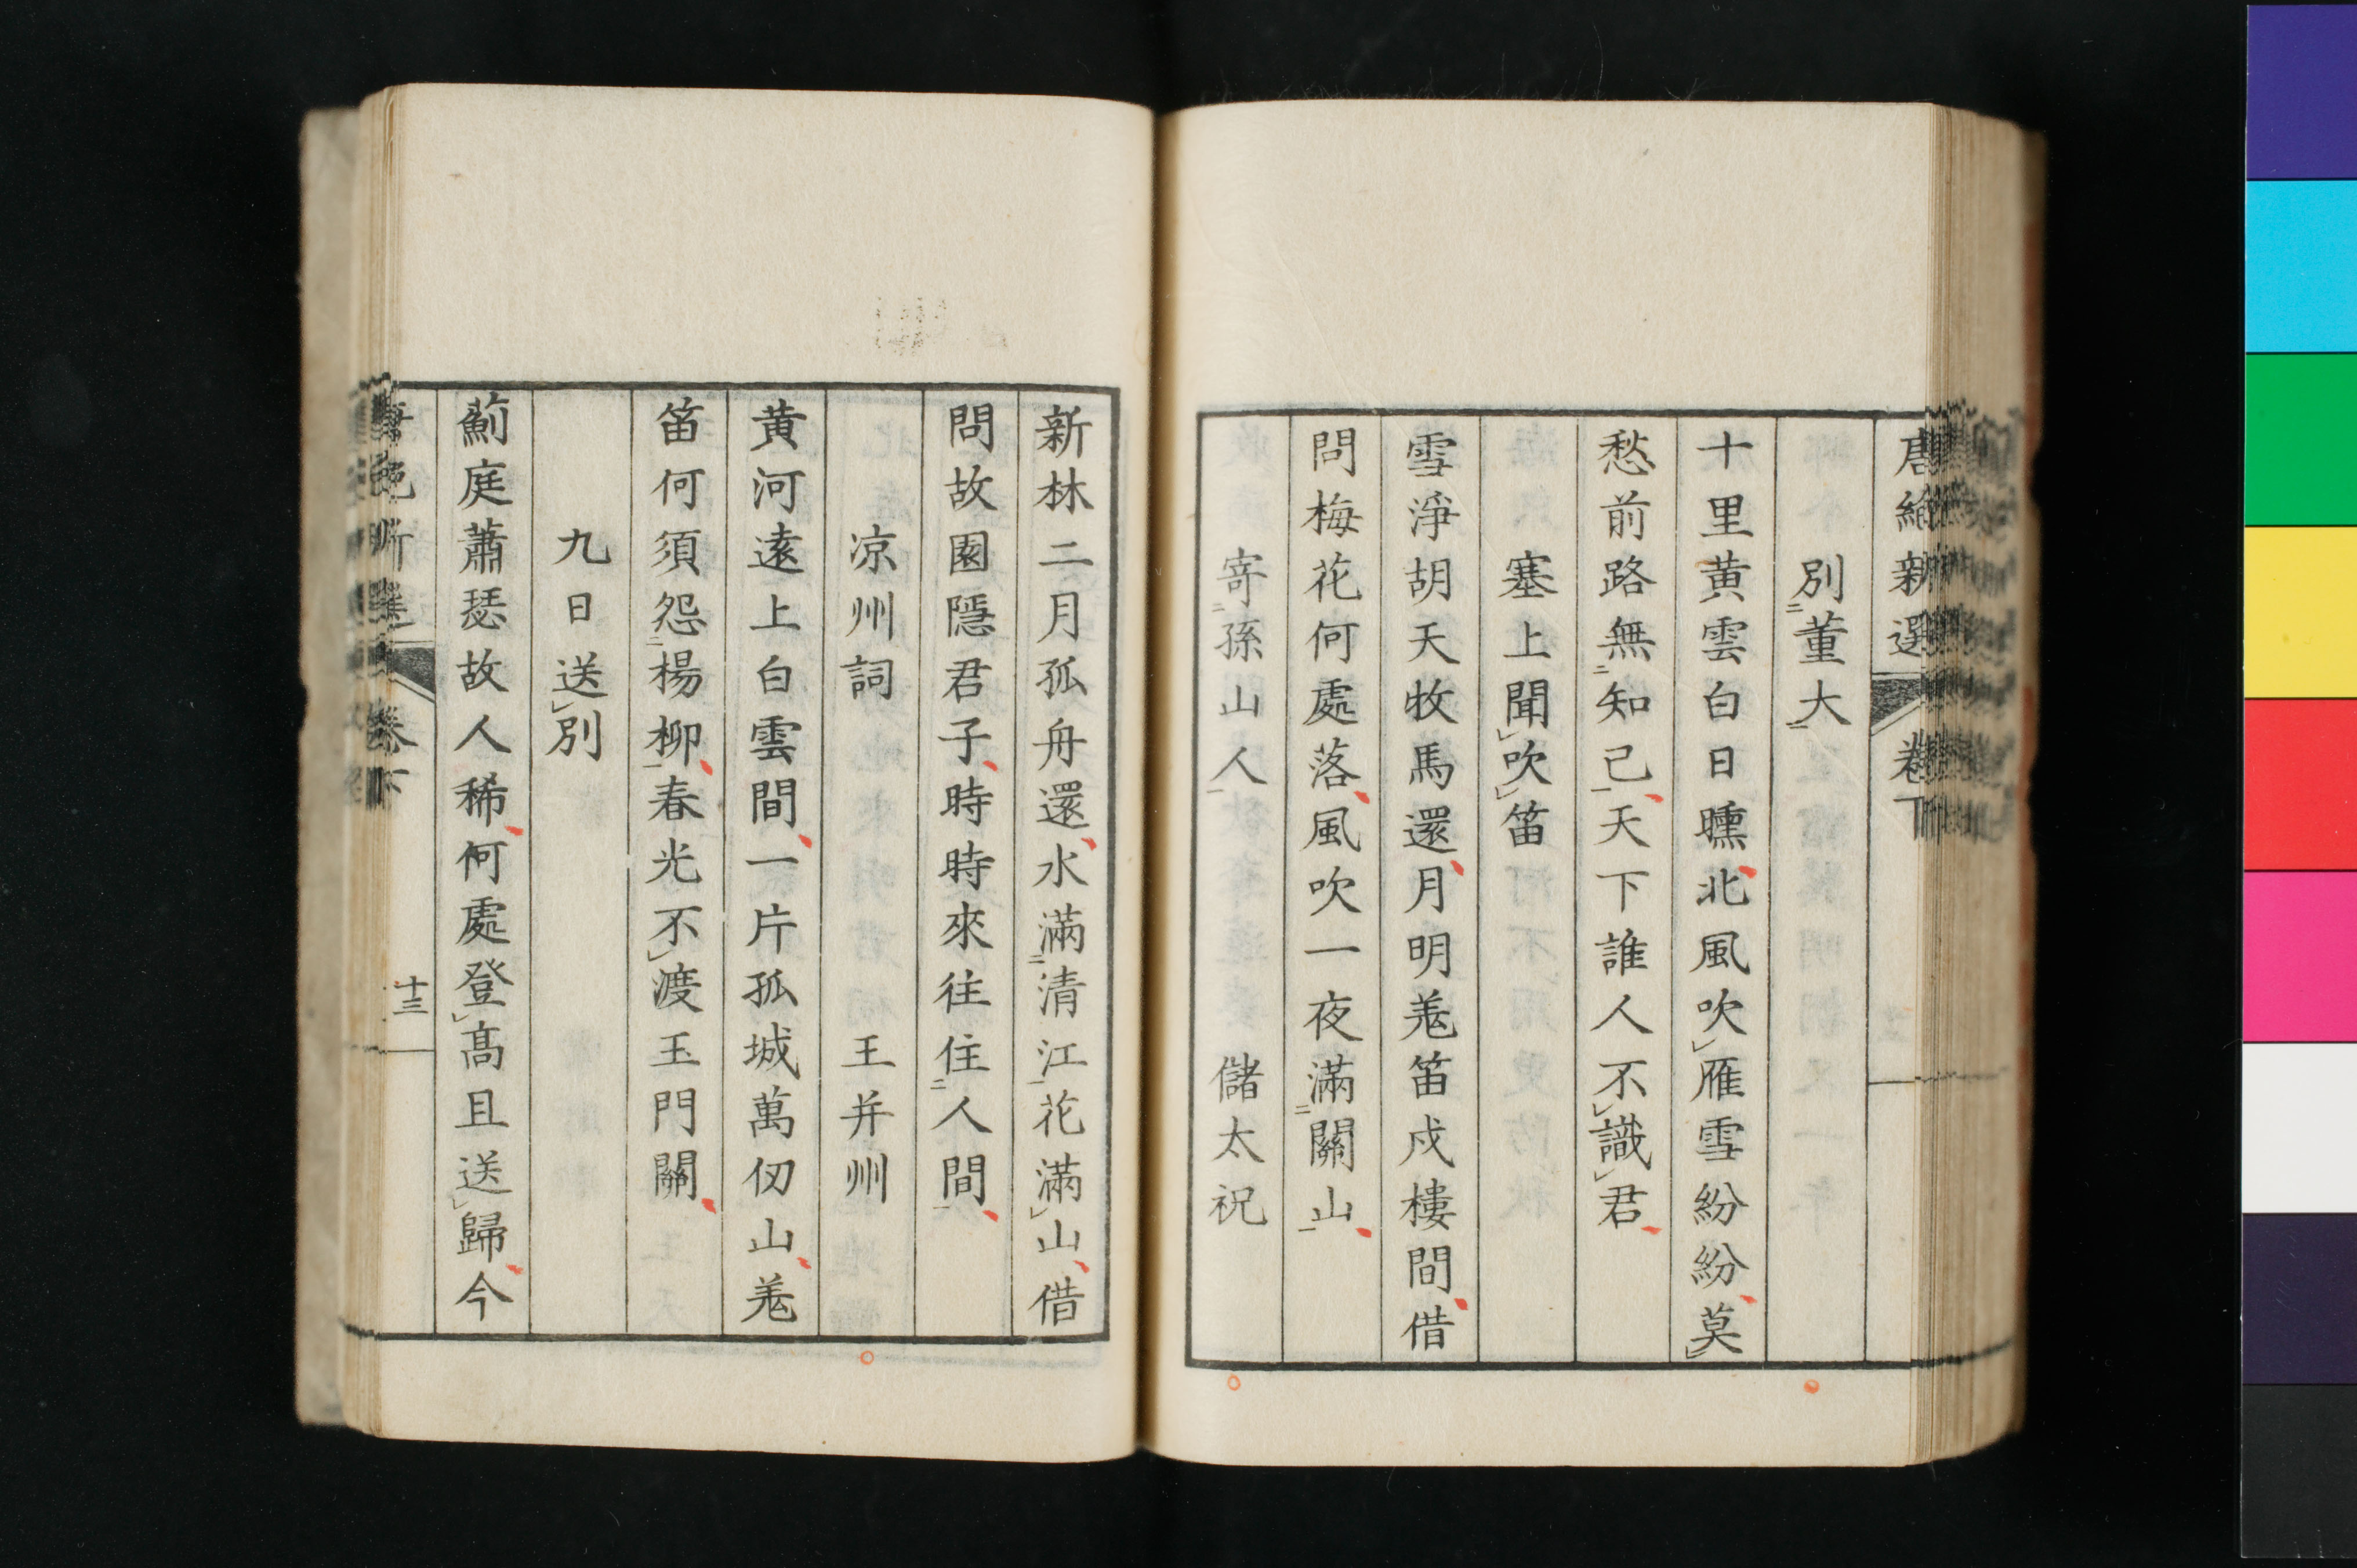 唐絕新選 卷下
別董大
十里黃雲白日曛北風吹雁雪紛紛莫
愁前路無知己天下誰人不識君
塞上聞吹笛
雪淨胡天牧馬還月明羗笛戍樓間借
問梅花何處落風吹一夜滿關山
寄孫山人 儲太祝
新林二月孤舟還水滿清江花滿山借
問故園隱君子時時來往住人間
凉州詞 王并州
黃河遠上白雲間一片孤城萬仞山羗
笛何須怨楊柳春光不渡玉門關
九日送別
薊庭蕭瑟故人稀何處登高且送歸今
唐絕新選 卷下 十三